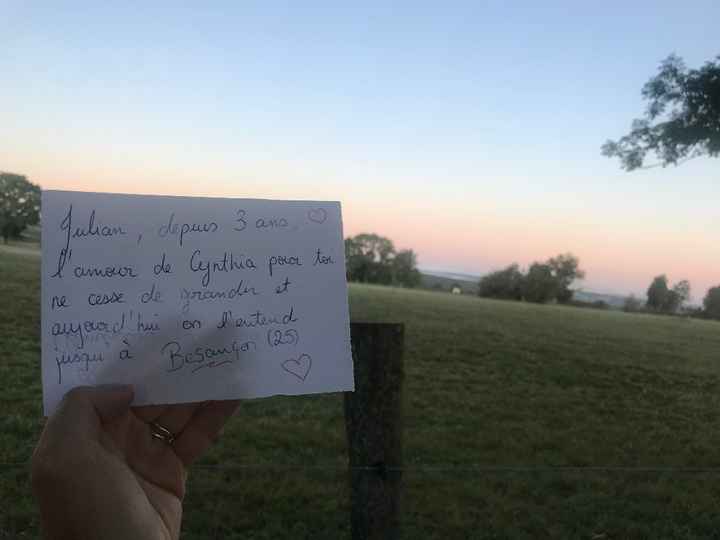 Julian, depuis 3 ans,
l'amour de Cynthia pour toi
ne cesse de grandir et
aujourd'hui on l'entend
jusqu'à Besançon (25)